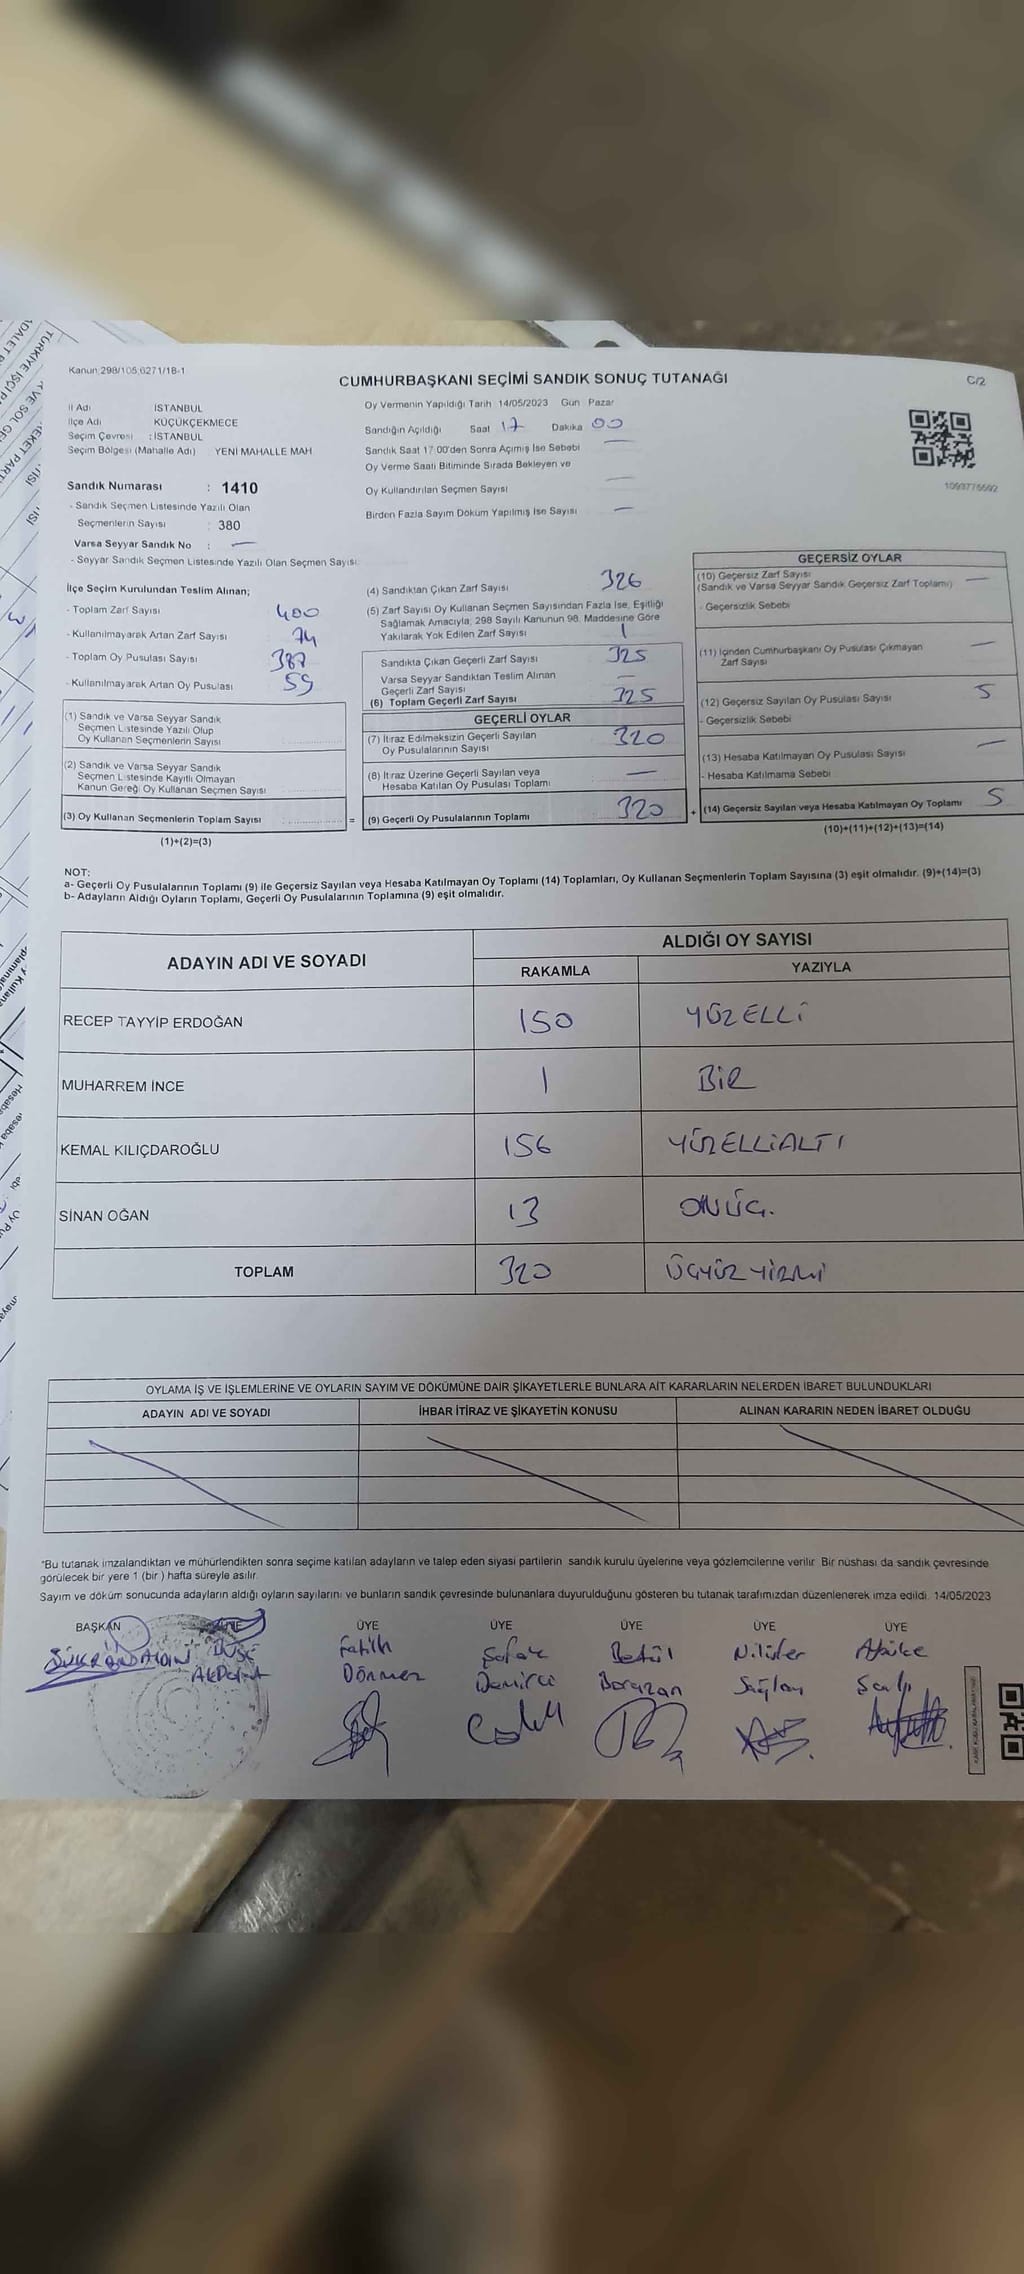 Kanun 298/105,6271/18-1
C/2
CUMHURBAŞKANI SEÇİMİ SANDIK SONUÇ TUTANAĞI
İl Adı İSTANBUL
İlçe Adı KÜÇÜKÇEKMECE
Seçim Çevresi : İSTANBUL
Seçim Bölgesi (Mahalle Adı) YENİ MAHALLE MAH
Sandık Numarası : 1410
- Sandık Seçmen Listesinde Yazılı Olan
Seçmenlerin Sayısı : 380
Varsa Seyyar Sandık No : —
- Seyyar Sandık Seçmen Listesinde Yazılı Olan Seçmen Sayısı:
Oy Vermenin Yapıldığı Tarih 14/05/2023 Gün Pazar
Sandığın Açıldığı Saat 17 Dakika 00
Sandık Saat 17 00'den Sonra Açılmış İse Sebebi —
Oy Verme Saati Bitiminde Sırada Bekleyen ve
Oy Kullandırılan Seçmen Sayısı —
Birden Fazla Sayım Döküm Yapılmış İse Sayısı —
1093776692
İlçe Seçim Kurulundan Teslim Alınan;
- Toplam Zarf Sayısı 400
- Kullanılmayarak Artan Zarf Sayısı 74
- Toplam Oy Pusulası Sayısı 387
- Kullanılmayarak Artan Oy Pusulası 59
(1) Sandık ve Varsa Seyyar Sandık
Seçmen Listesinde Yazılı Olup
Oy Kullanan Seçmenlerin Sayısı
(2) Sandık ve Varsa Seyyar Sandık
Seçmen Listesinde Kayıtlı Olmayan
Kanun Gereği Oy Kullanan Seçmen Sayısı
(3) Oy Kullanan Seçmenlerin Toplam Sayısı =
(1)+(2)=(3)
(4) Sandıktan Çıkan Zarf Sayısı 326
(5) Zarf Sayısı Oy Kullanan Seçmen Sayısından Fazla İse, Eşitliği
Sağlamak Amacıyla; 298 Sayılı Kanunun 98. Maddesine Göre
Yakılarak Yok Edilen Zarf Sayısı 1
Sandıkta Çıkan Geçerli Zarf Sayısı 325
Varsa Seyyar Sandıktan Teslim Alınan
Geçerli Zarf Sayısı —
(6) Toplam Geçerli Zarf Sayısı 325
GEÇERLİ OYLAR
(7) İtiraz Edilmeksizin Geçerli Sayılan
Oy Pusulalarının Sayısı 320
(8) İtiraz Üzerine Geçerli Sayılan veya
Hesaba Katılan Oy Pusulası Toplamı —
(9) Geçerli Oy Pusulalarının Toplamı 320 +
GEÇERSİZ OYLAR
(10) Geçersiz Zarf Sayısı
(Sandık ve Varsa Seyyar Sandık Geçersiz Zarf Toplamı) —
- Geçersizlik Sebebi
(11) İçinden Cumhurbaşkanı Oy Pusulası Çıkmayan
Zarf Sayısı —
(12) Geçersiz Sayılan Oy Pusulası Sayısı 5
- Geçersizlik Sebebi
(13) Hesaba Katılmayan Oy Pusulası Sayısı —
- Hesaba Katılmama Sebebi
(14) Geçersiz Sayılan veya Hesaba Katılmayan Oy Toplamı 5
(10)+(11)+(12)+(13)=(14)
NOT:
a- Geçerli Oy Pusulalarının Toplamı (9) ile Geçersiz Sayılan veya Hesaba Katılmayan Oy Toplamı (14) Toplamları, Oy Kullanan Seçmenlerin Toplam Sayısına (3) eşit olmalıdır. (9)+(14)=(3)
b- Adayların Aldığı Oyların Toplamı, Geçerli Oy Pusulalarının Toplamına (9) eşit olmalıdır.
ADAYIN ADI VE SOYADI
ALDIĞI OY SAYISI
RAKAMLA YAZIYLA
RECEP TAYYİP ERDOĞAN 150 YÜZELLİ
MUHARREM İNCE 1 BİR
KEMAL KILIÇDAROĞLU 156 YÜZELLİALTI
SİNAN OĞAN 13 ONÜÇ.
TOPLAM 320 ÜÇYÜZYİRMİ
OYLAMA İŞ VE İŞLEMLERİNE VE OYLARIN SAYIM VE DÖKÜMÜNE DAİR ŞİKAYETLERLE BUNLARA AİT KARARLARIN NELERDEN İBARET BULUNDUKLARI
ADAYIN ADI VE SOYADI İHBAR İTİRAZ VE ŞİKAYETİN KONUSU ALINAN KARARIN NEDEN İBARET OLDUĞU
*Bu tutanak imzalandıktan ve mühürlendikten sonra seçime katılan adayların ve talep eden siyasi partilerin sandık kurulu üyelerine veya gözlemcilerine verilir Bir nüshası da sandık çevresinde
görülecek bir yere 1 (bir) hafta süreyle asılır.
Sayım ve döküm sonucunda adayların aldığı oyların sayılarını ve bunların sandık çevresinde bulunanlara duyurulduğunu gösteren bu tutanak tarafımızdan düzenlenerek imza edildi. 14/05/2023
BAŞKAN ÜYE ÜYE ÜYE ÜYE ÜYE
Fatih Betül Nilüfer
Dönmez Demirci Borazan Sağlam